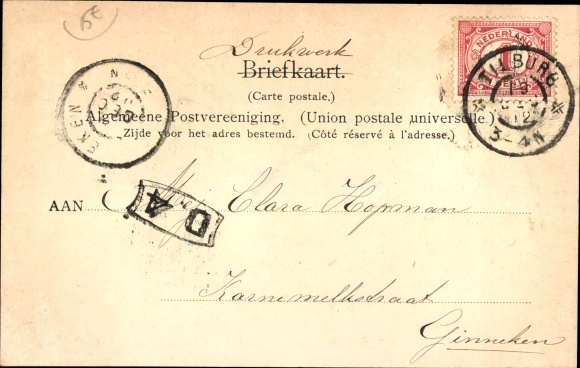 Drukwerk
Briefkaart.
(Carte postale.)
Algemeene Postvereeniging. (Union postale universelle.)
Zijde voor het adres bestemd. (Côté réservé à l'adresse.)
NEDERLAND
TILBURG
3-4N
D 4
AAN Mej Clara Hopman
Karnemelkstraat
Ginneken